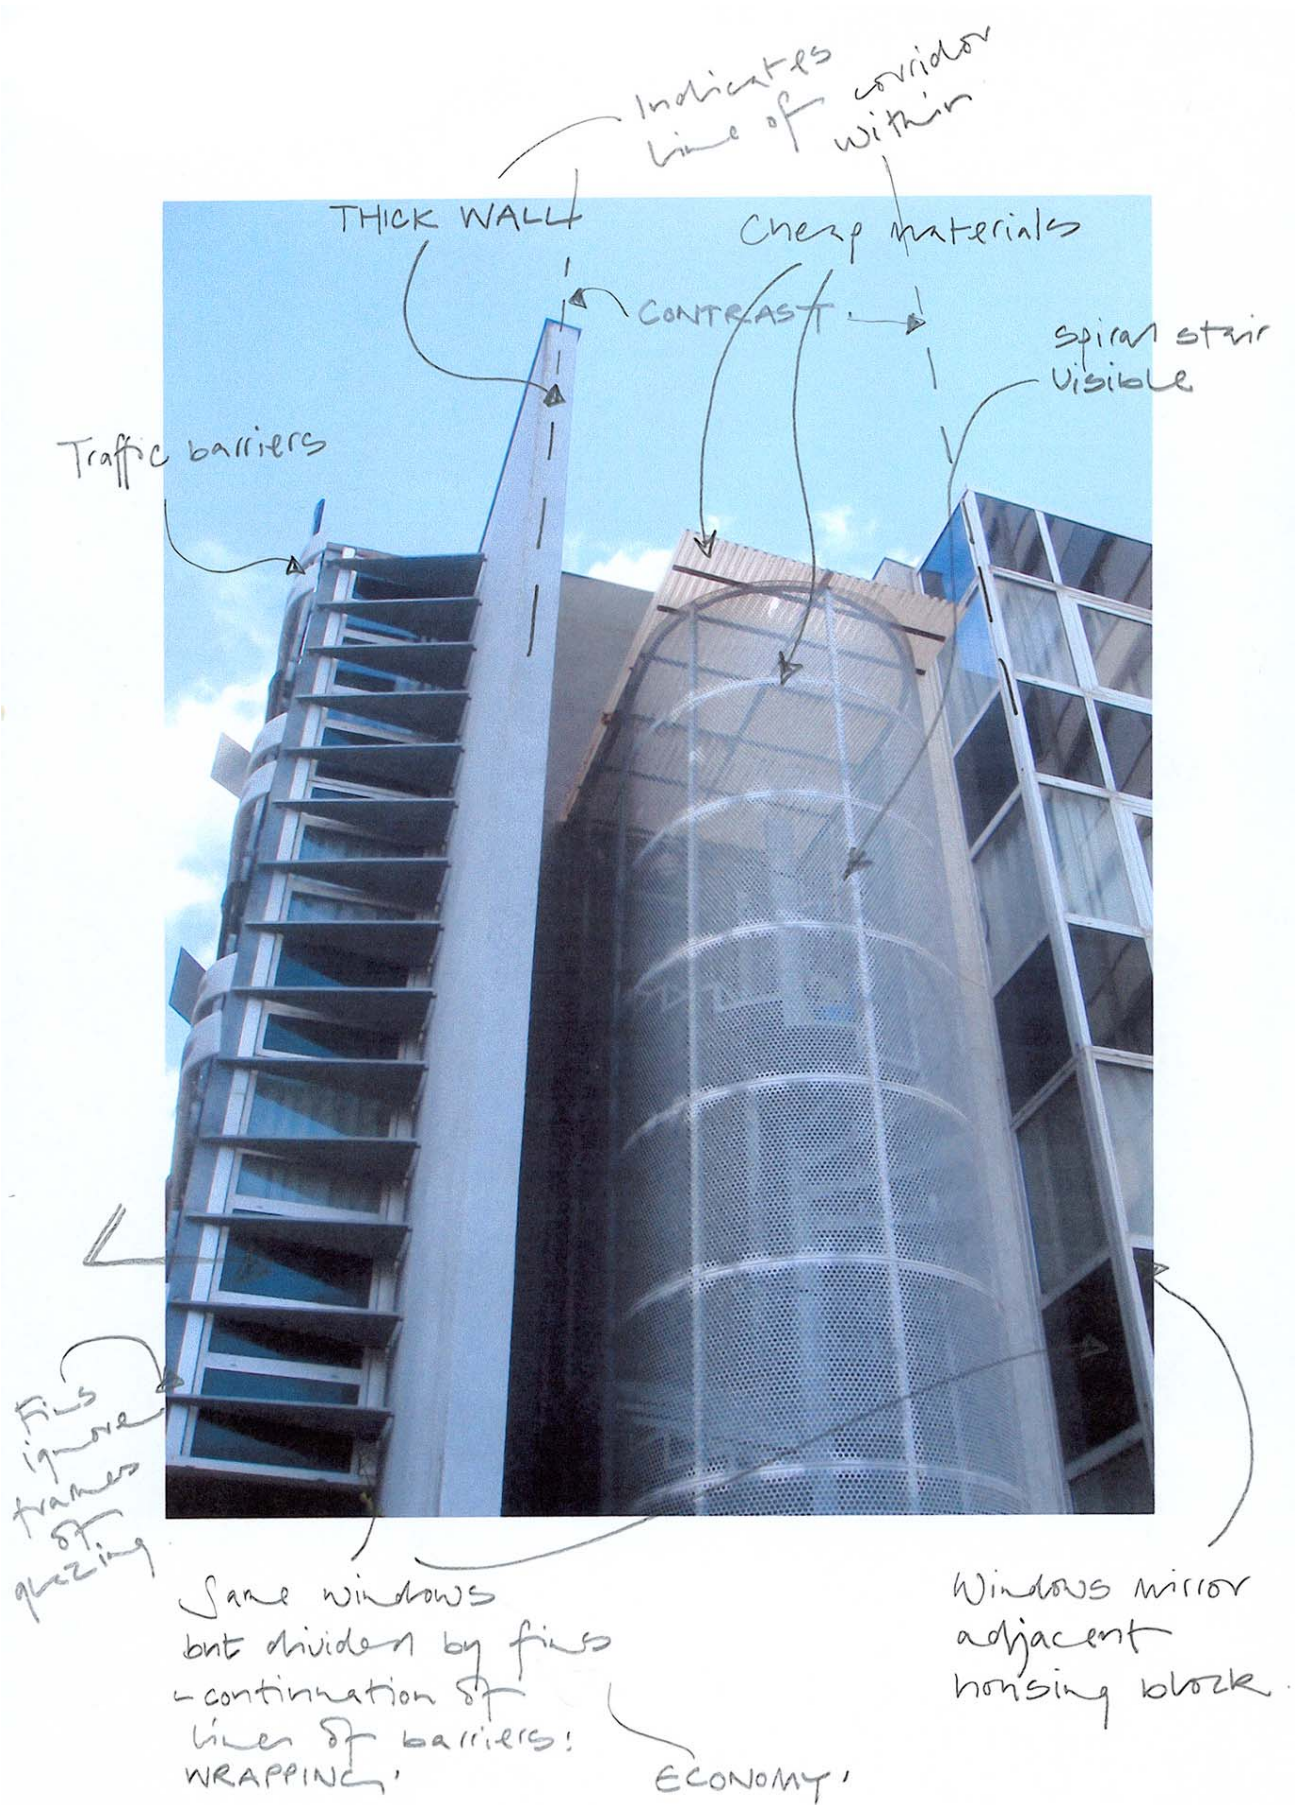 Indicates
line of corridor
within
THICK WALL
Cheap materials
CONTRAST.
spiral stair
visible
Traffic barriers
Fins
ignore
frames
of
glazing
Same windows
but divided by fins
- continuation of
lines of barriers!
WRAPPING!
ECONOMY!
Windows mirror
adjacent
housing block.